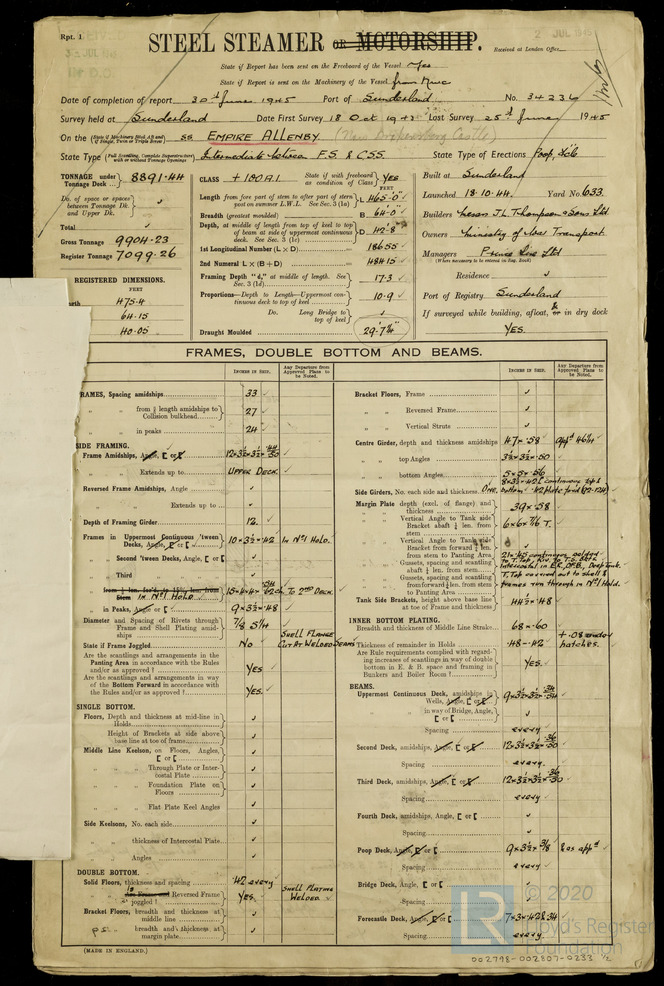 Rpt. 1
2 JUL 1945
STEEL STEAMER OR MOTORSHIP.
Received at London Office
State if Report has been sent on the Freeboard of the Vessel Yes
State if Report is sent on the Machinery of the Vessel from
Date of completion of report 30th June 1945 Port of Sunderland No. 34236
Survey held at Sunderland Date First Survey 18 Oct 1943 Last Survey 25th June 1945
On the (State if Machinery fitted Aft and if Single, Twin or Triple Screw) SS EMPIRE ALLENBY
State Type (Full Scantling, Complete Superstructure with or without Tonnage Openings) Intermediate between F.S. & C.S.S. State Type of Erections Poop, Fcle
TONNAGE under Tonnage Deck 8891.44
Do. of space or spaces between Tonnage Dk. and Upper Dk.
Total
Gross Tonnage 9904.23
Register Tonnage 7099.26
REGISTERED DIMENSIONS.
FEET
475.4
64.15
40.05
CLASS +100A1 State if with freeboard as condition of Class YES
FEET
Length from fore part of stem to after part of stern post on summer L.W.L. See Sec. 3 (1a) L 465'-0"
Breadth (greatest moulded) B 64'-0"
Depth, at middle of length from top of keel to top of beam at side of uppermost continuous deck. See Sec. 3 (1c) D
1st Longitudinal Number (L × D) 18655
2nd Numeral L × (B + D) 48415
Framing Depth "d," at middle of length. See Sec. 3 (1d) 17.3
Proportions—Depth to Length—Uppermost continuous deck to top of keel 10.9
Do. Long Bridge to top of keel
Draught Moulded 29'-7¼"
Built at Sunderland
Launched 18.10.44 Yard No 633.
Builders Messrs J.L. Thompson & Sons Ltd
Owners Ministry of War Transport
Managers Prince Line Ltd
(Where necessary to be entered in Reg. Book)
Residence
Port of Registry Sunderland
If surveyed while building, afloat, & or in dry dock
YES.
FRAMES, DOUBLE BOTTOM AND BEAMS.
INCHES IN SHIP.
Any Departure from Approved Plans to be Noted.
FRAMES, Spacing amidships 33
" " from ⅕ length amidships to Collision bulkhead 27
" " in peaks 24
SIDE FRAMING.
Frame Amidships, Angle, [ or [
" " Extends up to UPPER DECK
Reversed Frame Amidships, Angle
" " Extends up to
Depth of Framing Girder 12.
Frames in Uppermost Continuous 'tween Decks, Angle, [ or [ 10 × 3½ × .42 IN No1 HOLD.
" Second 'tween Decks, Angle, [ or [
" Third " " "
in No1 HOLD TO 2ND DECK
" in Peaks, Angle or [ 9 × 3½ × .48
Diameter and Spacing of Rivets through Frame and Shell Plating amidships 7/8 5¼
State if Frame Joggled No
SHELL FLANGE CUT AT WELDED SEAMS
Are the scantlings and arrangements in the Panting Area in accordance with the Rules and/or as approved ? YES
Are the scantlings and arrangements in way of the Bottom Forward in accordance with the Rules and/or as approved ? YES.
SINGLE BOTTOM.
Floors, Depth and thickness at mid-line in Holds
" Height of Brackets at side above base line at toe of frame
Middle Line Keelson, on Floors, Angles, [ or [
" " Through Plate or Intercostal Plate
" " Foundation Plate on Floors
" " Flat Plate Keel Angles
Side Keelsons, No. each side
" " thickness of Intercostal Plate
" " Angles
DOUBLE BOTTOM.
Solid Floors, thickness and spacing .42 every
Reversed Frame joggled ? YES.
SHELL PLATING WELDED
Bracket Floors, breadth and thickness at middle line
" " breadth and thickness at margin plate
INCHES IN SHIP.
Any Departure from Approved Plans to be Noted.
Bracket Floors, Frame
" " Reversed Frame
" " Vertical Struts
Centre Girder, depth and thickness amidships 47 × .58
" " top Angles 3½ × 3½ × .50
" " bottom Angles 5 × 5 × .56
Side Girders, No. each side and thickness One.
Margin Plate depth (excl. of flange) and thickness 39 × .58
" Vertical Angle to Tank side Bracket abaft ¼ len. from stem
" Vertical Angle to Tank side Bracket from forward ¼ len. from stem to Panting Area
" Gussets, spacing and scantling abaft ¼ len. from stem
" Gussets, spacing and scantling from forward ¼ len. from stem to Panting Area
Tank Side Brackets, height above base line at toe of Frame and thickness 44½ × .48
INNER BOTTOM PLATING.
Breadth and thickness of Middle Line Strake 68 × .60
Thickness of remainder in Holds .48 - .42
+ .08 under hatches.
Are Rule requirements complied with regarding increases of scantlings in way of double bottom in E. & B. space and framing in Bunkers and Boiler Room ? YES.
BEAMS.
Uppermost Continuous Deck, amidships in Wells, Angle, [ or [
" " in way of Bridge, Angle, [ or [
Spacing every
Second Deck, amidships, Angle, [ or [
Spacing every
Third Deck, amidships, Angle, [ or [
Spacing every
Fourth Deck, amidships, Angle, [ or [
Spacing
Poop Deck, Angle, [ or [ & as appd
Spacing every
Bridge Deck, Angle, [ or [
Spacing
Forecastle Deck, Angle, [ or [
Spacing every
(MADE IN ENGLAND.)
LR
© 2020
Lloyd's Register
Foundation
002798-002807-0233 ½